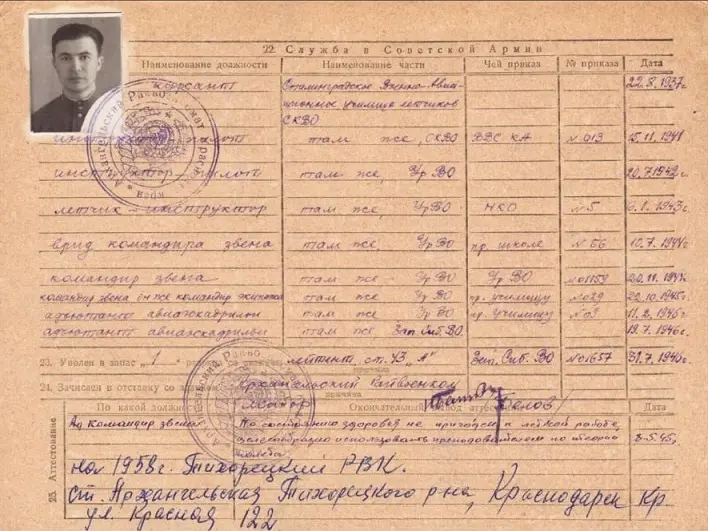 22. Служба в Советской Армии
Наименование должности Наименование части Чей приказ № приказа Дата
курсант Сталинградское Военно-авиа-
ционных училище летчиков 22.8.1937г.
СКВО
пилот там же, СКВО ВВС КА № 013 15.11.1941
инструктор-пилот там же, УрВО 20.7.1942 г.
летчик-инструктор там же, УрВО НКО № 5 6.1.1943г.
врид командира звена там же, УрВО пр. школе № 66 10.7.1944г.
командир звена там же УрВО УрВО № 01159
командир звена он же командир экипажа там же УрВО пр. училищу № 029 22.10.1945г.
адъютант авиаэскадрильи там же УрВО пр. училищу № 03 11.2.1946г.
адъютант авиаэскадрильи там же Зап. Сиб. ВО 19.7.1946г.
23. Уволен в запас „1" ст. 43 "А" Зап. Сиб. ВО № 01657 31.7.1946г.
причина
24. Зачислен в отставку со
причина
По какой должности Окончательный вывод Дата
25. Аттестование
командир звена По состоянию здоровья не пригоден к летной работе,
целесообразно использовать преподавателем по теории 8.5.45г.
полета
1958г. Тихорецкий РВК.
ст. Архангельская Тихорецкого р-на, Краснодарск Кр.
ул. Красная 122